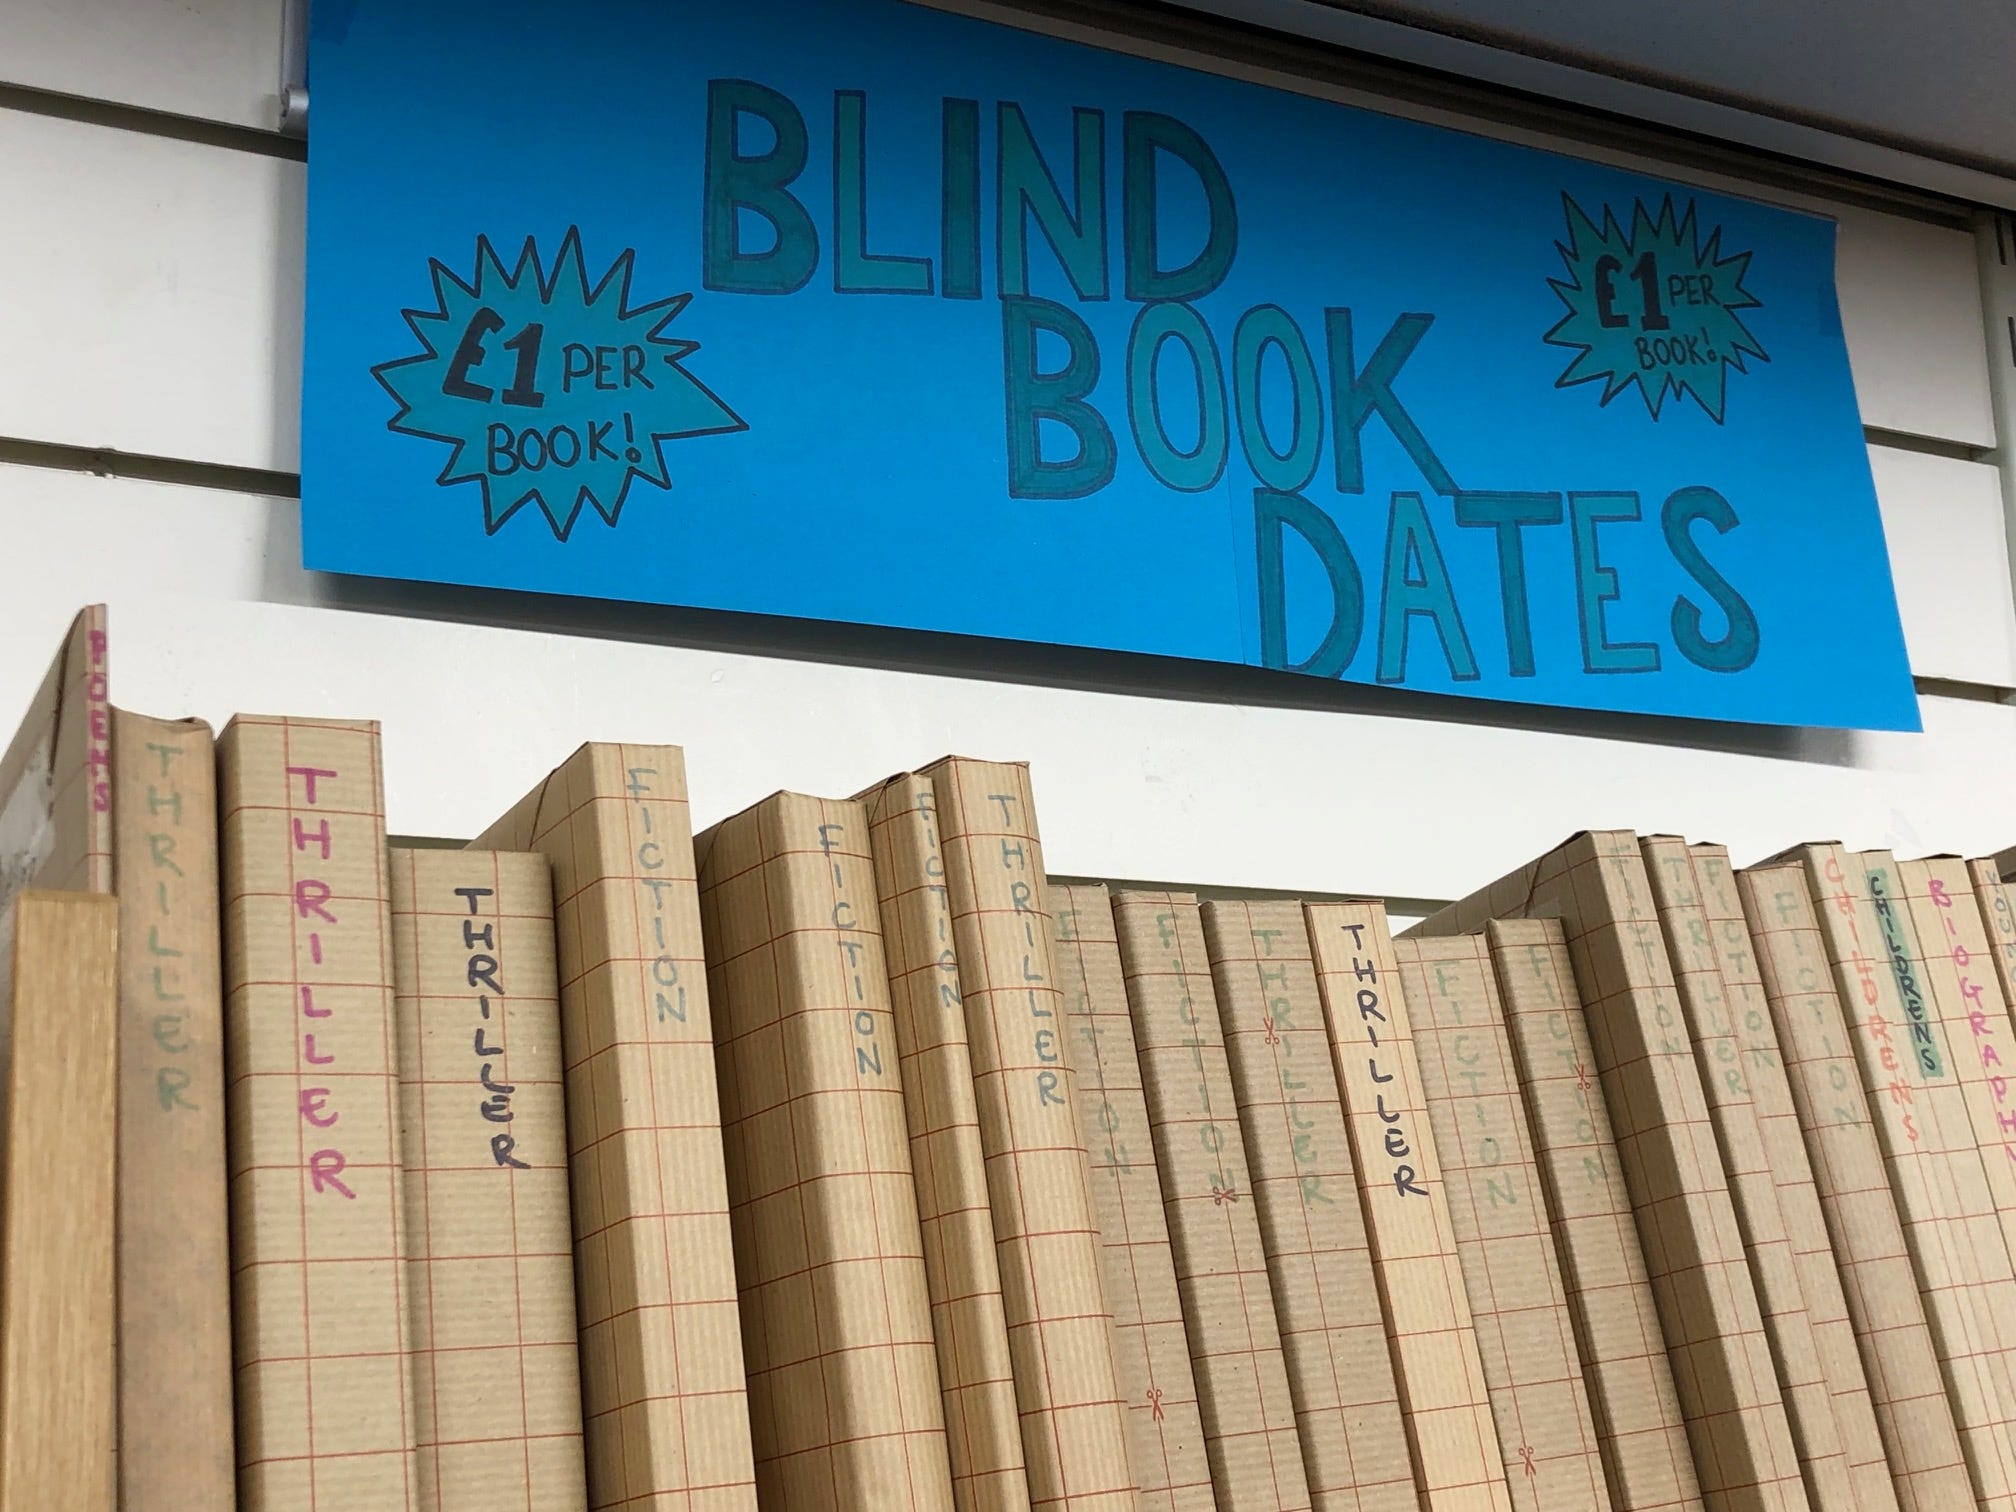 BLIND
BOOK
DATES
£1 PER
BOOK!
£1 PER
BOOK!
POEMS
THRILLER
THRILLER
THRILLER
FICTION
FICTION
FICTION
THRILLER
FICTION
FICTION
THRILLER
THRILLER
FICTION
FICTION
FICTION
THRILLER
FICTION
FICTION
CHILDRENS
CHILDRENS
BIOGRAPHY